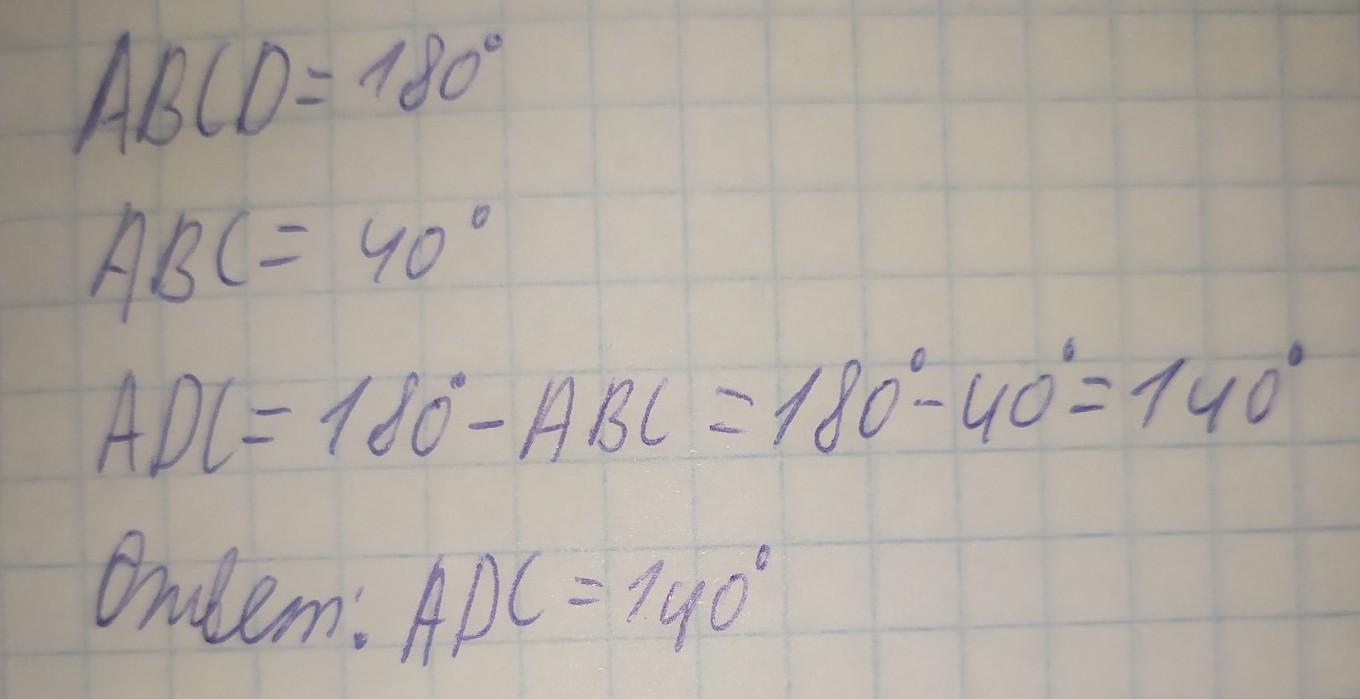 ABCD = 180°
ABC = 40°
ADC = 180° - ABC = 180° - 40° = 140°
Ответ: ADC = 140°